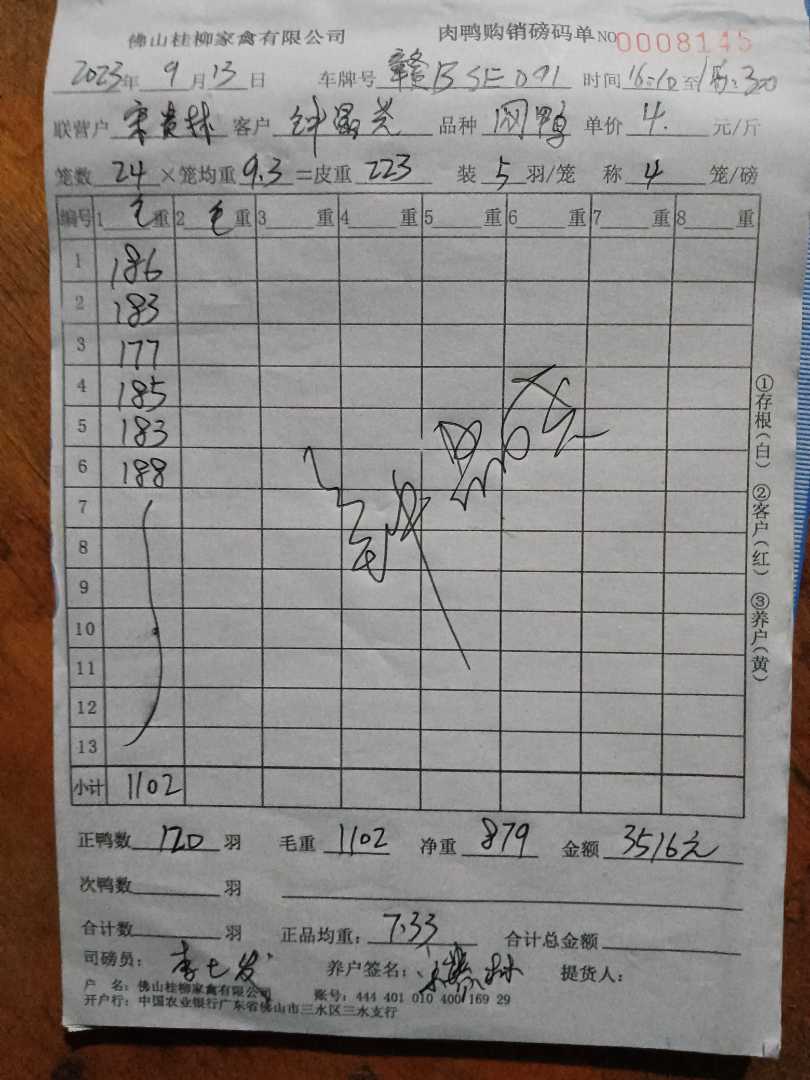 佛山桂柳家禽有限公司 肉鸭购销磅码单 NO 0008145
2023年 9月13日 车牌号 赣B5E091 时间 16:10 至
联营户 宋贵林 客户 钟昌 品种 网鸭 单价 4. 元/斤
笼数 24 ×笼均重 9.3 =皮重 223 装 5 羽/笼 称 4 笼/磅
编号 1 毛 重 2 毛 重 3 重 4 重 5 重 6 重 7 重 8 重
1 186
2 183
3 177
4 185
5 183
6 188
7
8
9
10
11
12
13
小计 1102
正鸭数 120 羽 毛重 1102 净重 879 金额 3516元
次鸭数 羽
合计数 羽 正品均重: 7.33 合计总金额
司磅员: 李七发 养户签名: 宋贵林 提货人:
户 名: 佛山桂柳家禽有限公司 账号: 444 401 010 400 169 29
开户行: 中国农业银行广东省佛山市三水区三水支行
①存根(白) ②客户(红) ③养户(黄)